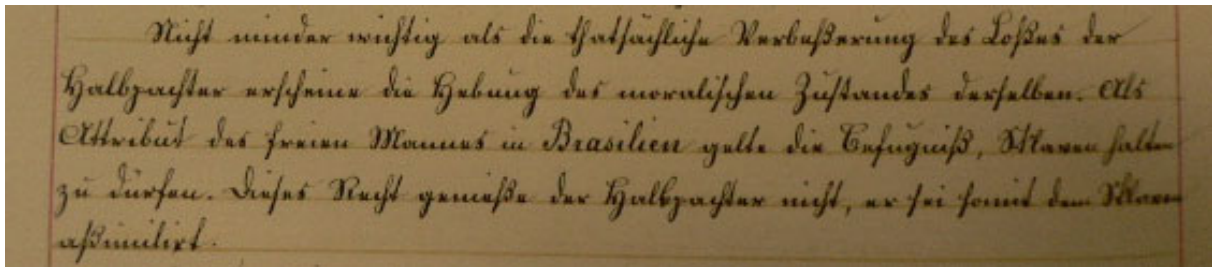 Nicht minder wichtig als die thatsächliche Verbeßerung des Loßes der
Halbpachter erscheine die Hebung des moralischen Zustandes derselben. Als
Attribut des freien Mannes in Brasilien gelte die Befugniß, Sklaven halten
zu dürfen. Dieses Recht genieße der Halbpachter nicht, er sei somit dem Sklaven
aßimilirt.